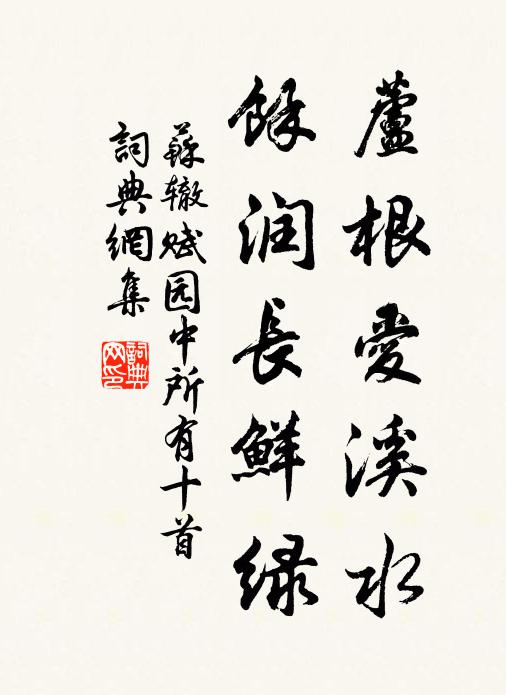 蘆根愛溪水
餘润長鮮绿
蘇辙赋园中所有十首
詞典網集
詞典
网印